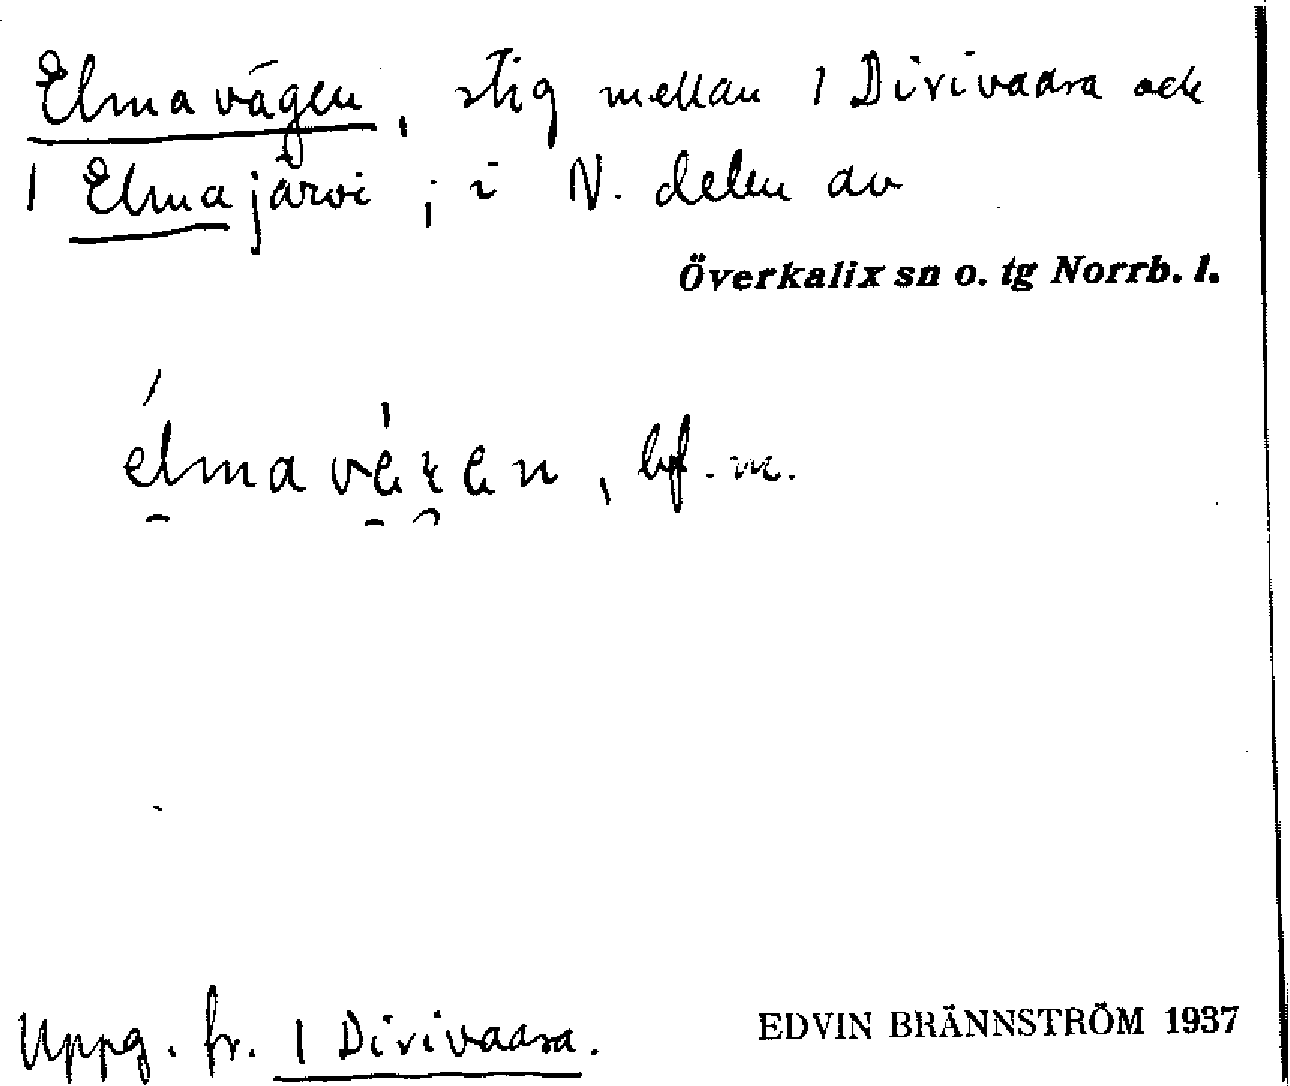 Elmavägen, stig mellan 1 Dirivaara och
1 Elmajärvi ; i N. delen av
Överkalix sn o. tg Norrb. l.
bf. m.
Uppg. fr. 1 Dirivaara.
EDVIN BRÄNNSTRÖM 1937